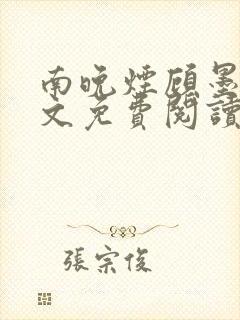 南晚煙顧墨
文免費閱讀
張宗俊